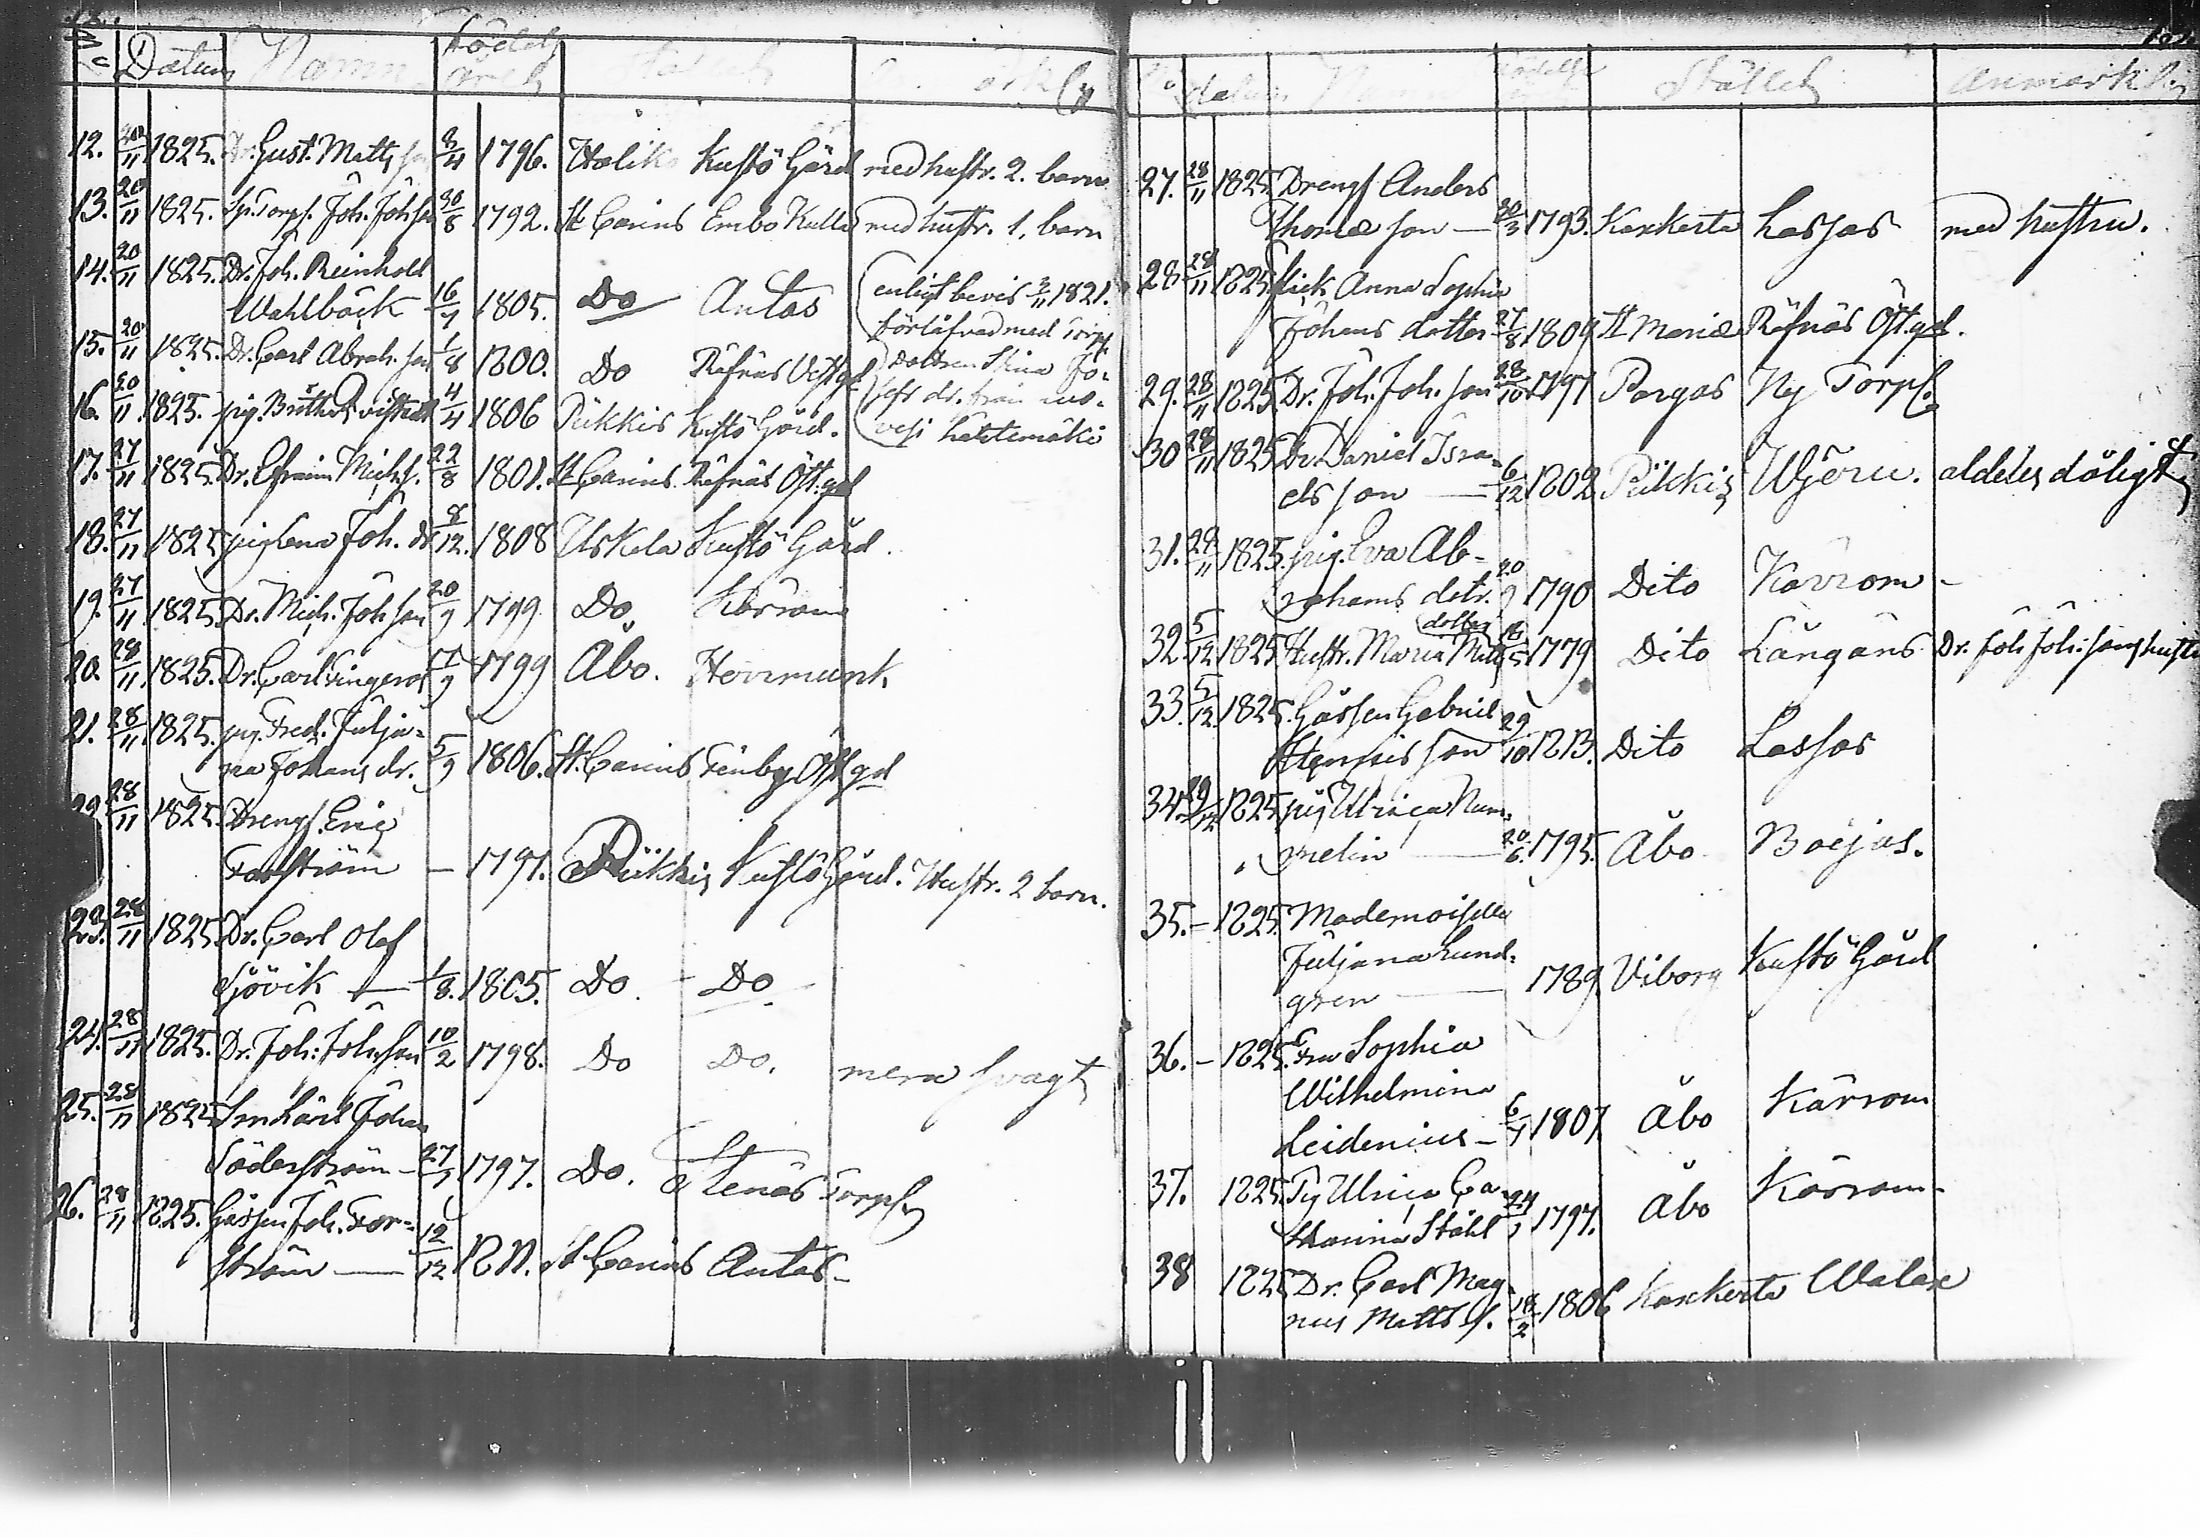 No Datum Namn Födelse
12. 20/11 1825. Dr. Gust. Mattsson 3/4 1796. Haliko Kustö Gård med hustr. 2. barn
13. 20/11 1825. Joh. Johsson 30/8 1792. St Carins Embo Kulla med hustr. 1, barn
14. 20/11 1825. Dr. Joh. Reinhold
Wahlbäck 16/7 1805. Do Autas enligt bevis 3/11 1821.
förlåfvad med Torp.
15. 20/11 1825. Dr. Carl Abrah. son 1/8 1800. Do Räfnäs Vestgd dottren Stina Jo-
16. 20/11 1825. pig. 4/4 1806 Piikkis Kustö Gård. sefs dr. från
17. 27/11 1825. Dr. Efraim Michs. 22/8 1801. St Carins Räfnäs Östgd
18. 27/11 1825 pig Lena Joh. dr 8/12. 1808 Uskela Kustö Gård.
19. 27/11 1825 Dr. Mich. Johsson 20/9 1799 Do. Kärrom
20. 28/11 1825. Dr. Carl 1799 Åbo. Herrmunk
21. 28/11 1825. pig. Fred. Julja-
na Johans dr. 5/9 1806. St. Carins Östgd
22. 28/11 1825. Drengs. Eric
Forsström — 1797. Piikkis Kustö Gård. Hustr. 2 barn.
23. 28/11 1825. Dr. Carl Olof
Sjövik — 1/8. 1805. Do Do
24. 28/11 1825. Dr. Joh: Joh:son 10/2 1798. Do Do. mera svagt
25. 28/11 1825 Johan
Söderström — 27/9 1797. Do. Stenäs Torp
26. 28/11 1825. Gossen Joh. For-
ström — 12/12 1811. St Carins Autas —
Datum Namn Födelse Stället Anmärkn.
27. 28/11 1825 Drengs Anders
Thomæ son — 30/3 1793. Kaxkerta Lassas med hustru.
28. 28/11 1825 flick. Anna Sophia
Johans dotter 27/8 1809 St Mariæ Räfnäs Östgd.
29. 28/11 1825 Dr. Joh. Joh. son 28/10 1797 Pargas Ny Torps.
30 28/11 1825 Dr. Daniel Isra-
els son — 6/12 1802 Piikkis Wjeru. aldeles dåligt
31. 28/11 1825. pig. Eva Ab-
rahams dotr. 20/9 1790 Dito Kärrom —
dotter
32. 5/12 1825 Hustr. Maria Matts 1779 Dito Långäns Dr. Joh Joh:sons hustru
33. 5/12. 1825. Gossen Gabriel
Henricsson 29/10 1813. Dito Lassas
34. 1825 pig Ulrica Num-
melin — 20/6. 1795. Åbo Boejas.
35. — 1825. Mademoiselle
Juljana Lund-
gren — 1789. Viborg Kustö Gård
36. — 1825. Fru Sophia
Wilhelmina
Leidenius — 6/7 1807. Åbo Kärrom
37. 1825 Pig Ulrica Ca-
tharina Ståhl 24/1 1797. Åbo Kärrom —
38 1825 Dr. Carl Mag-
nus Matts s. 18/2 1806 Kaxkerta Walax